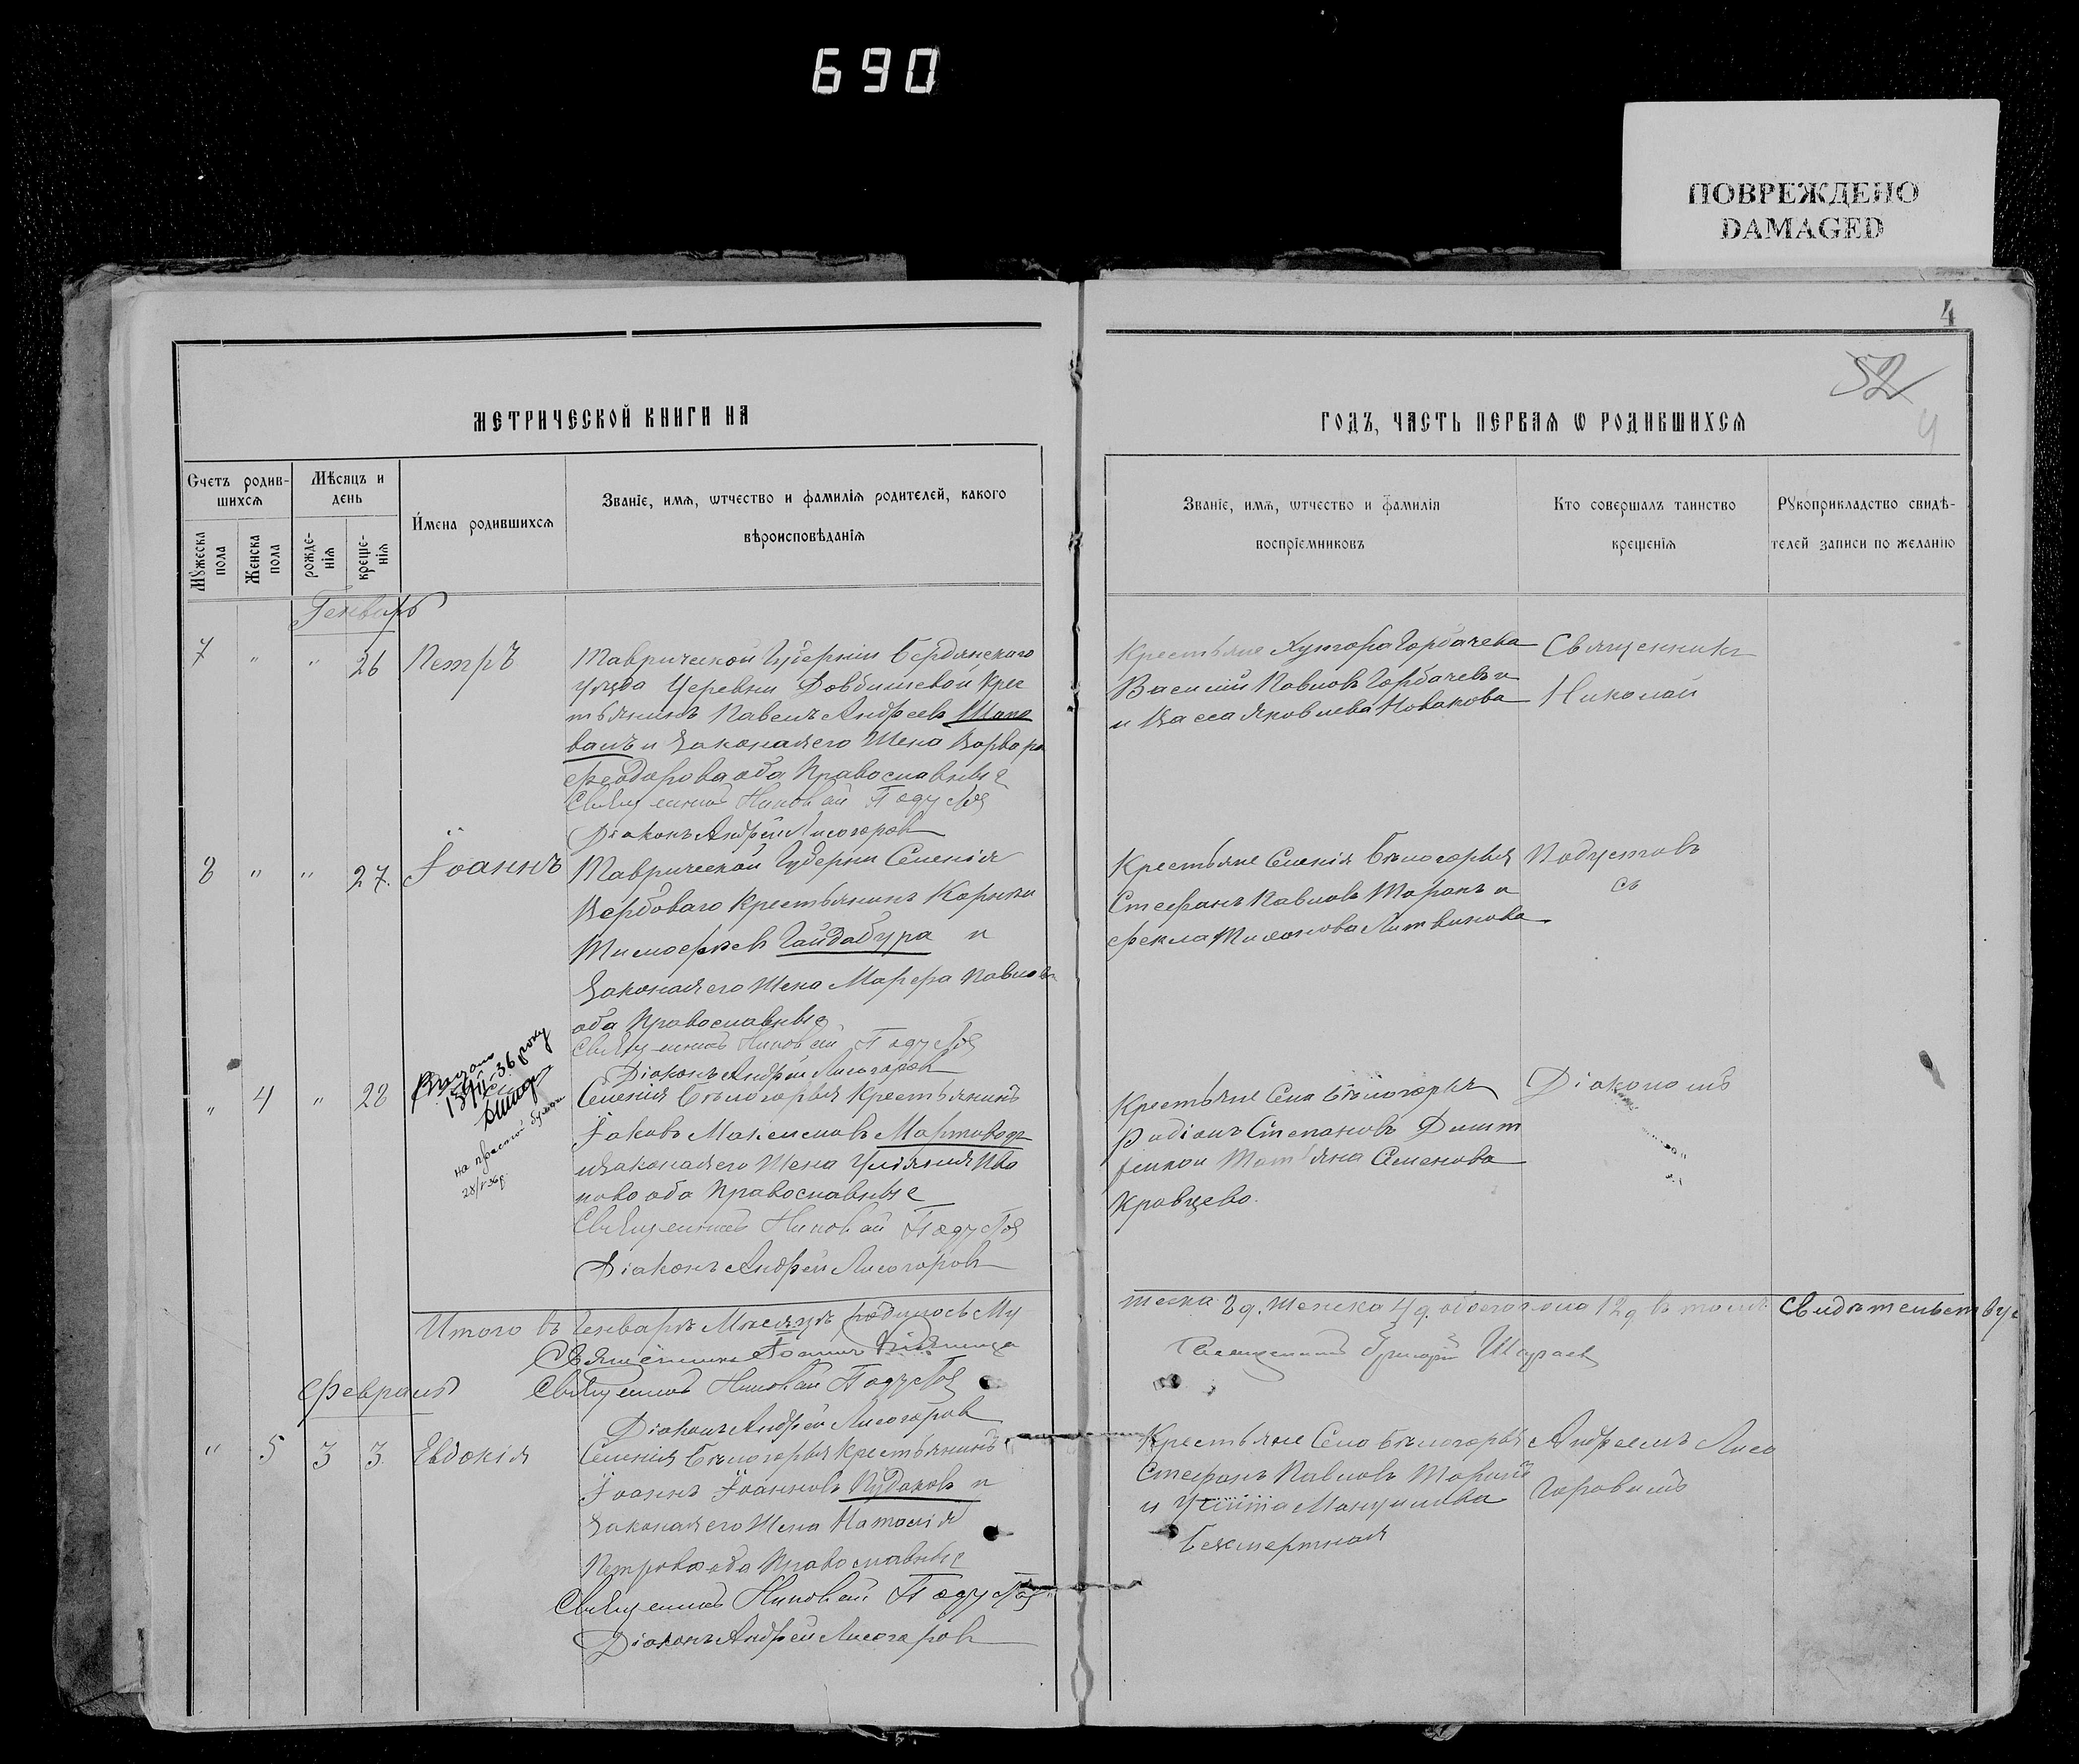 690
ПОВРЕЖДЕНО
DAMAGED
4
52
4
МЕТРИЧЕСКОЙ КНИГИ НА
ГОДЪ, ЧАСТЬ ПЕРВАЯ Ѡ РОДИВШИХСЯ
Счетъ родив-
шихся
Мѣсяцъ и
день
Мужеска
пола
Женска
пола
рожде-
нія
креще-
нія
Имена родившихся
Званіе, имя, ѡтчество и фамилія родителей, какого
вѣроисповѣданія
Званіе, имя, ѡтчество и фамилія
воспріемниковъ
Кто совершалъ таинство
крещенія
Рукоприкладство свидѣ-
телей записи по желанію
Генварь
7 " " 26 Петръ
Таврической Губерніи Бердянскаго
уѣзда Деревни Довбишевой Крес
тьянинъ Павелъ Андреевъ Шапо
валъ и Законая его Жена Варвара
Феодорова оба Православные
Священникъ Николай Подустов
Діаконъ Андрей Лисогоров
Крестьяне Хутора Горбачева
Василій Павловъ Горбачевъ и
и Васса Яковлева Новакова
Священникъ
Николай
8 " " 27. Іоаннъ
Таврической Губерни Селенія
Вербоваго Крестьянинъ Корнѣи
Тимофѣев Гайдабура и
Законая его Жена Марфа Павлов
оба Православные
Священникъ Николай Подустов
Діаконъ Андрей Лисогоров
Крестьяне Селенія Бѣлогорья
Стефанъ Павловъ Таранъ и
Фекла Тихонова Литвинова
Подустовъ
съ
" 4 " 28
на простой бумаге
Селенія Бѣлогорья Крестьянинъ
Іаковъ Максимовъ Мартовод
и Законая его Жена Уліянія Ива
нова оба Православные
Священникъ Николай Подустов
Діаконъ Андрей Лисогоров
Крестьяне Села Бѣлогорья
Родіонъ Степановъ
Татьяна Семенова
Кравцево.
Діакономъ
Итого въ Генварѣ Месяцѣ родилось Му
жеска 8 д. Женска 4 д. обоего пола 12 д въ томъ Свидѣтельствуе
Священникъ Іоаннъ
Священникъ Григорій
Священникъ Николай Подустов
Діаконъ Андрей Лисогоров
Февраль
" 5 3 3 Евдокія
Селенія Бѣлогорья Крестьянинъ
Іоаннъ Іоанновъ Пудаковъ и
Законая его Жена Наталія
Петрова оба Православные
Священникъ Николай Подустов
Діаконъ Андрей Лисогоров
Крестьяне Село Бѣлогорья
Стефанъ Павловъ
и Мануилова
Безсмертная
Андреемъ Лисо
горовымъ